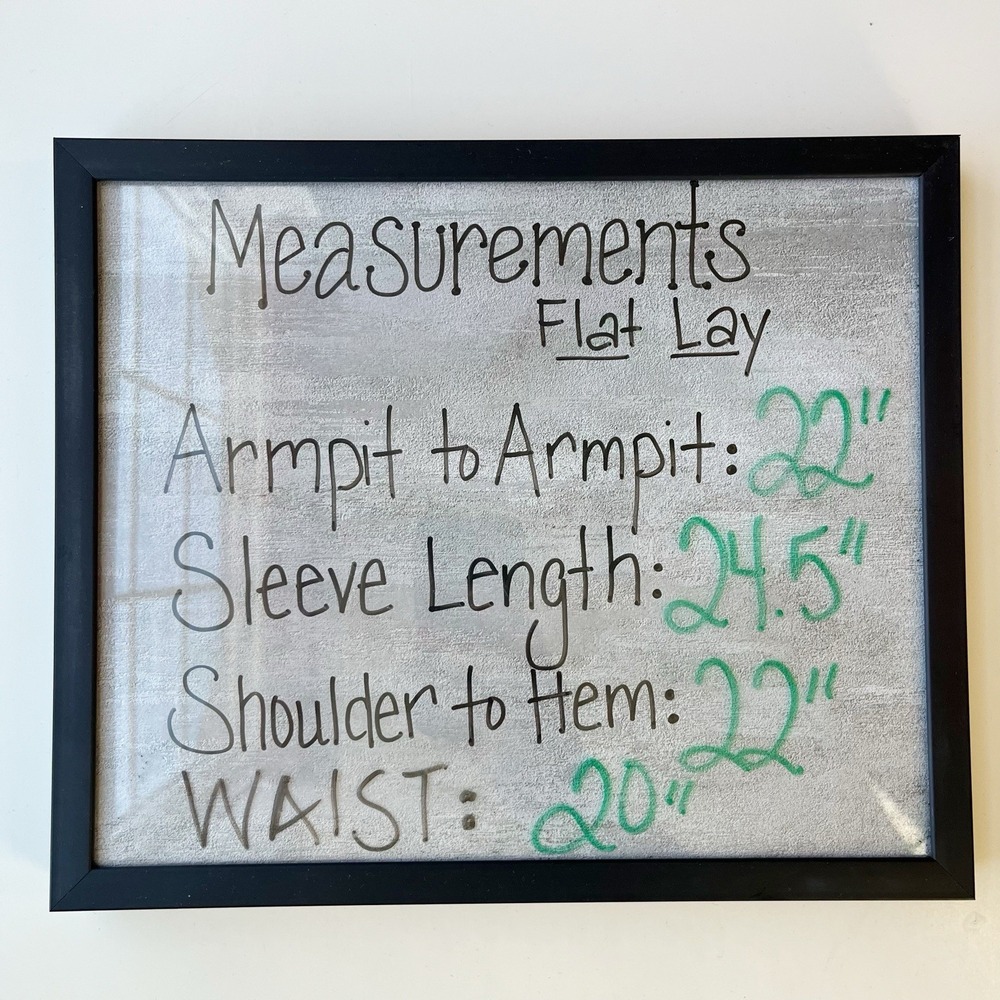 Measurements
Flat Lay
Armpit to Armpit: 22"
Sleeve Length: 24.5"
Shoulder to Hem: 22"
WAIST: 20"